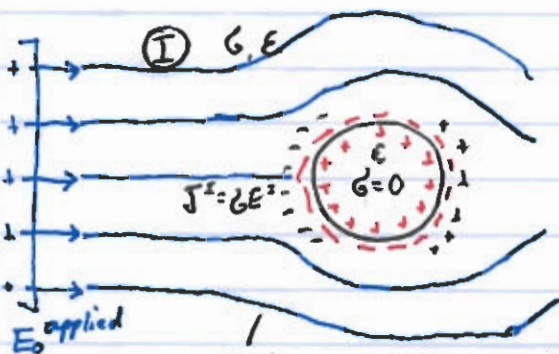 I σ, ε
ε
σ=0
J^I = σE^I
E₀ applied